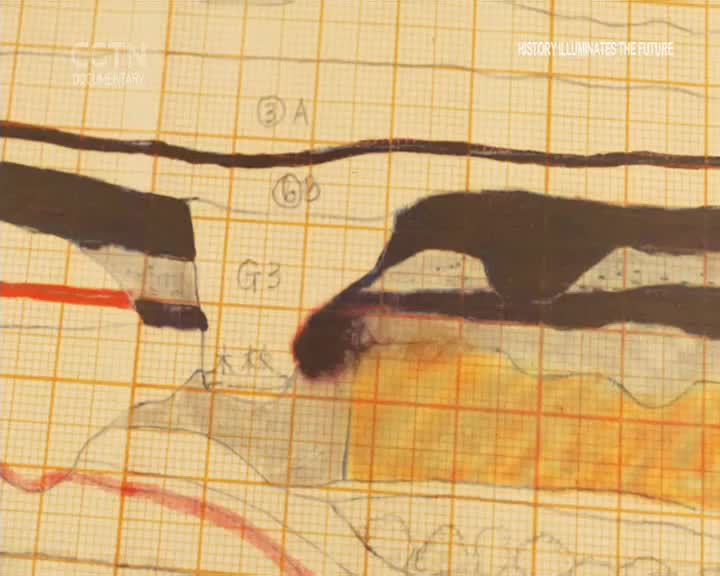 CGTN
DOCUMENTARY
HISTORY ILLUMINATES THE FUTURE
③A
⑥B
G3